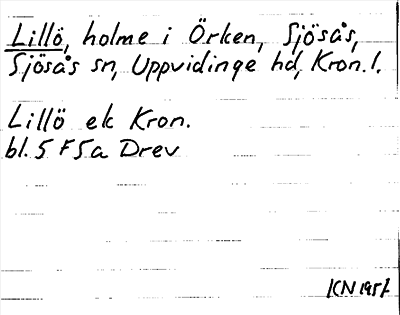 Lillö, holme i Örken, Sjösås,
Sjösås sn, Uppvidinge hd, Kron.l.
Lillö ek Kron.
bl. 5 F 5a Drev
KN 1957